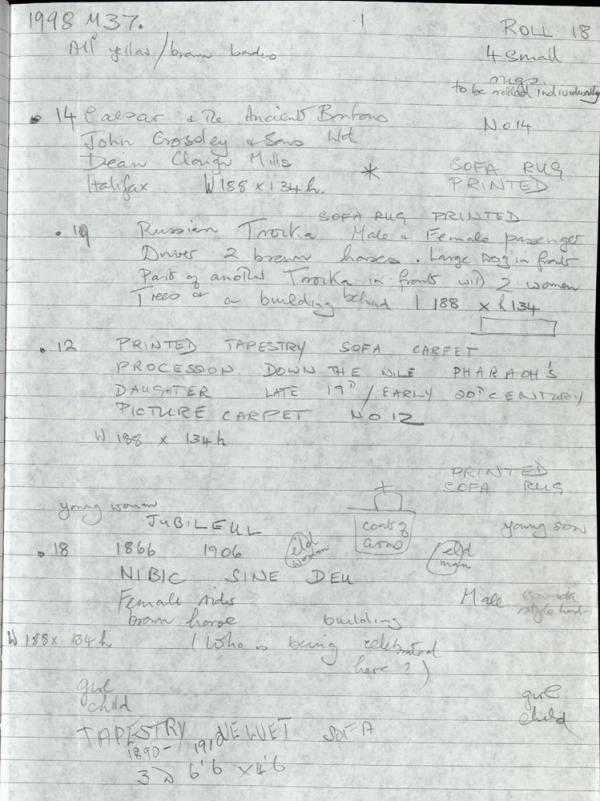 1998 M37. 1 ROLL 18
All yellow/brown borders 4 small
rugs
to be rolled individually
• 14 Caesar & The Ancient Britons No 14
John Crossley & Sons Ltd
Dean Clough Mills * SOFA RUG
Halifax W 188 x 134 h. PRINTED
SOFA RUG PRINTED
• 19 Russian Troika Male & Female passenger
Driver 2 brown horses. Large Dog in front
Part of another Troika in front with 2 women
Trees & a building behind 188 x h 134
• 12 PRINTED TAPESTRY SOFA CARPET
PROCESSION DOWN THE NILE PHARAOH'S
DAUGHTER LATE 19th / EARLY 20th CENTURY
PICTURE CARPET No 12
W 188 x 134 h
PRINTED
SOFA RUG
young woman coats of arms young son
JUBILEUL
• 18 1866 1906 old woman old man
NIBIC SINE DEU
Female rides Male style hat
brown horse building
W 188 x 134 h (Who is being celebrated
here?)
girl child girl child
TAPESTRY VELVET SOFA
1890- 1910
6'6 x 4'6